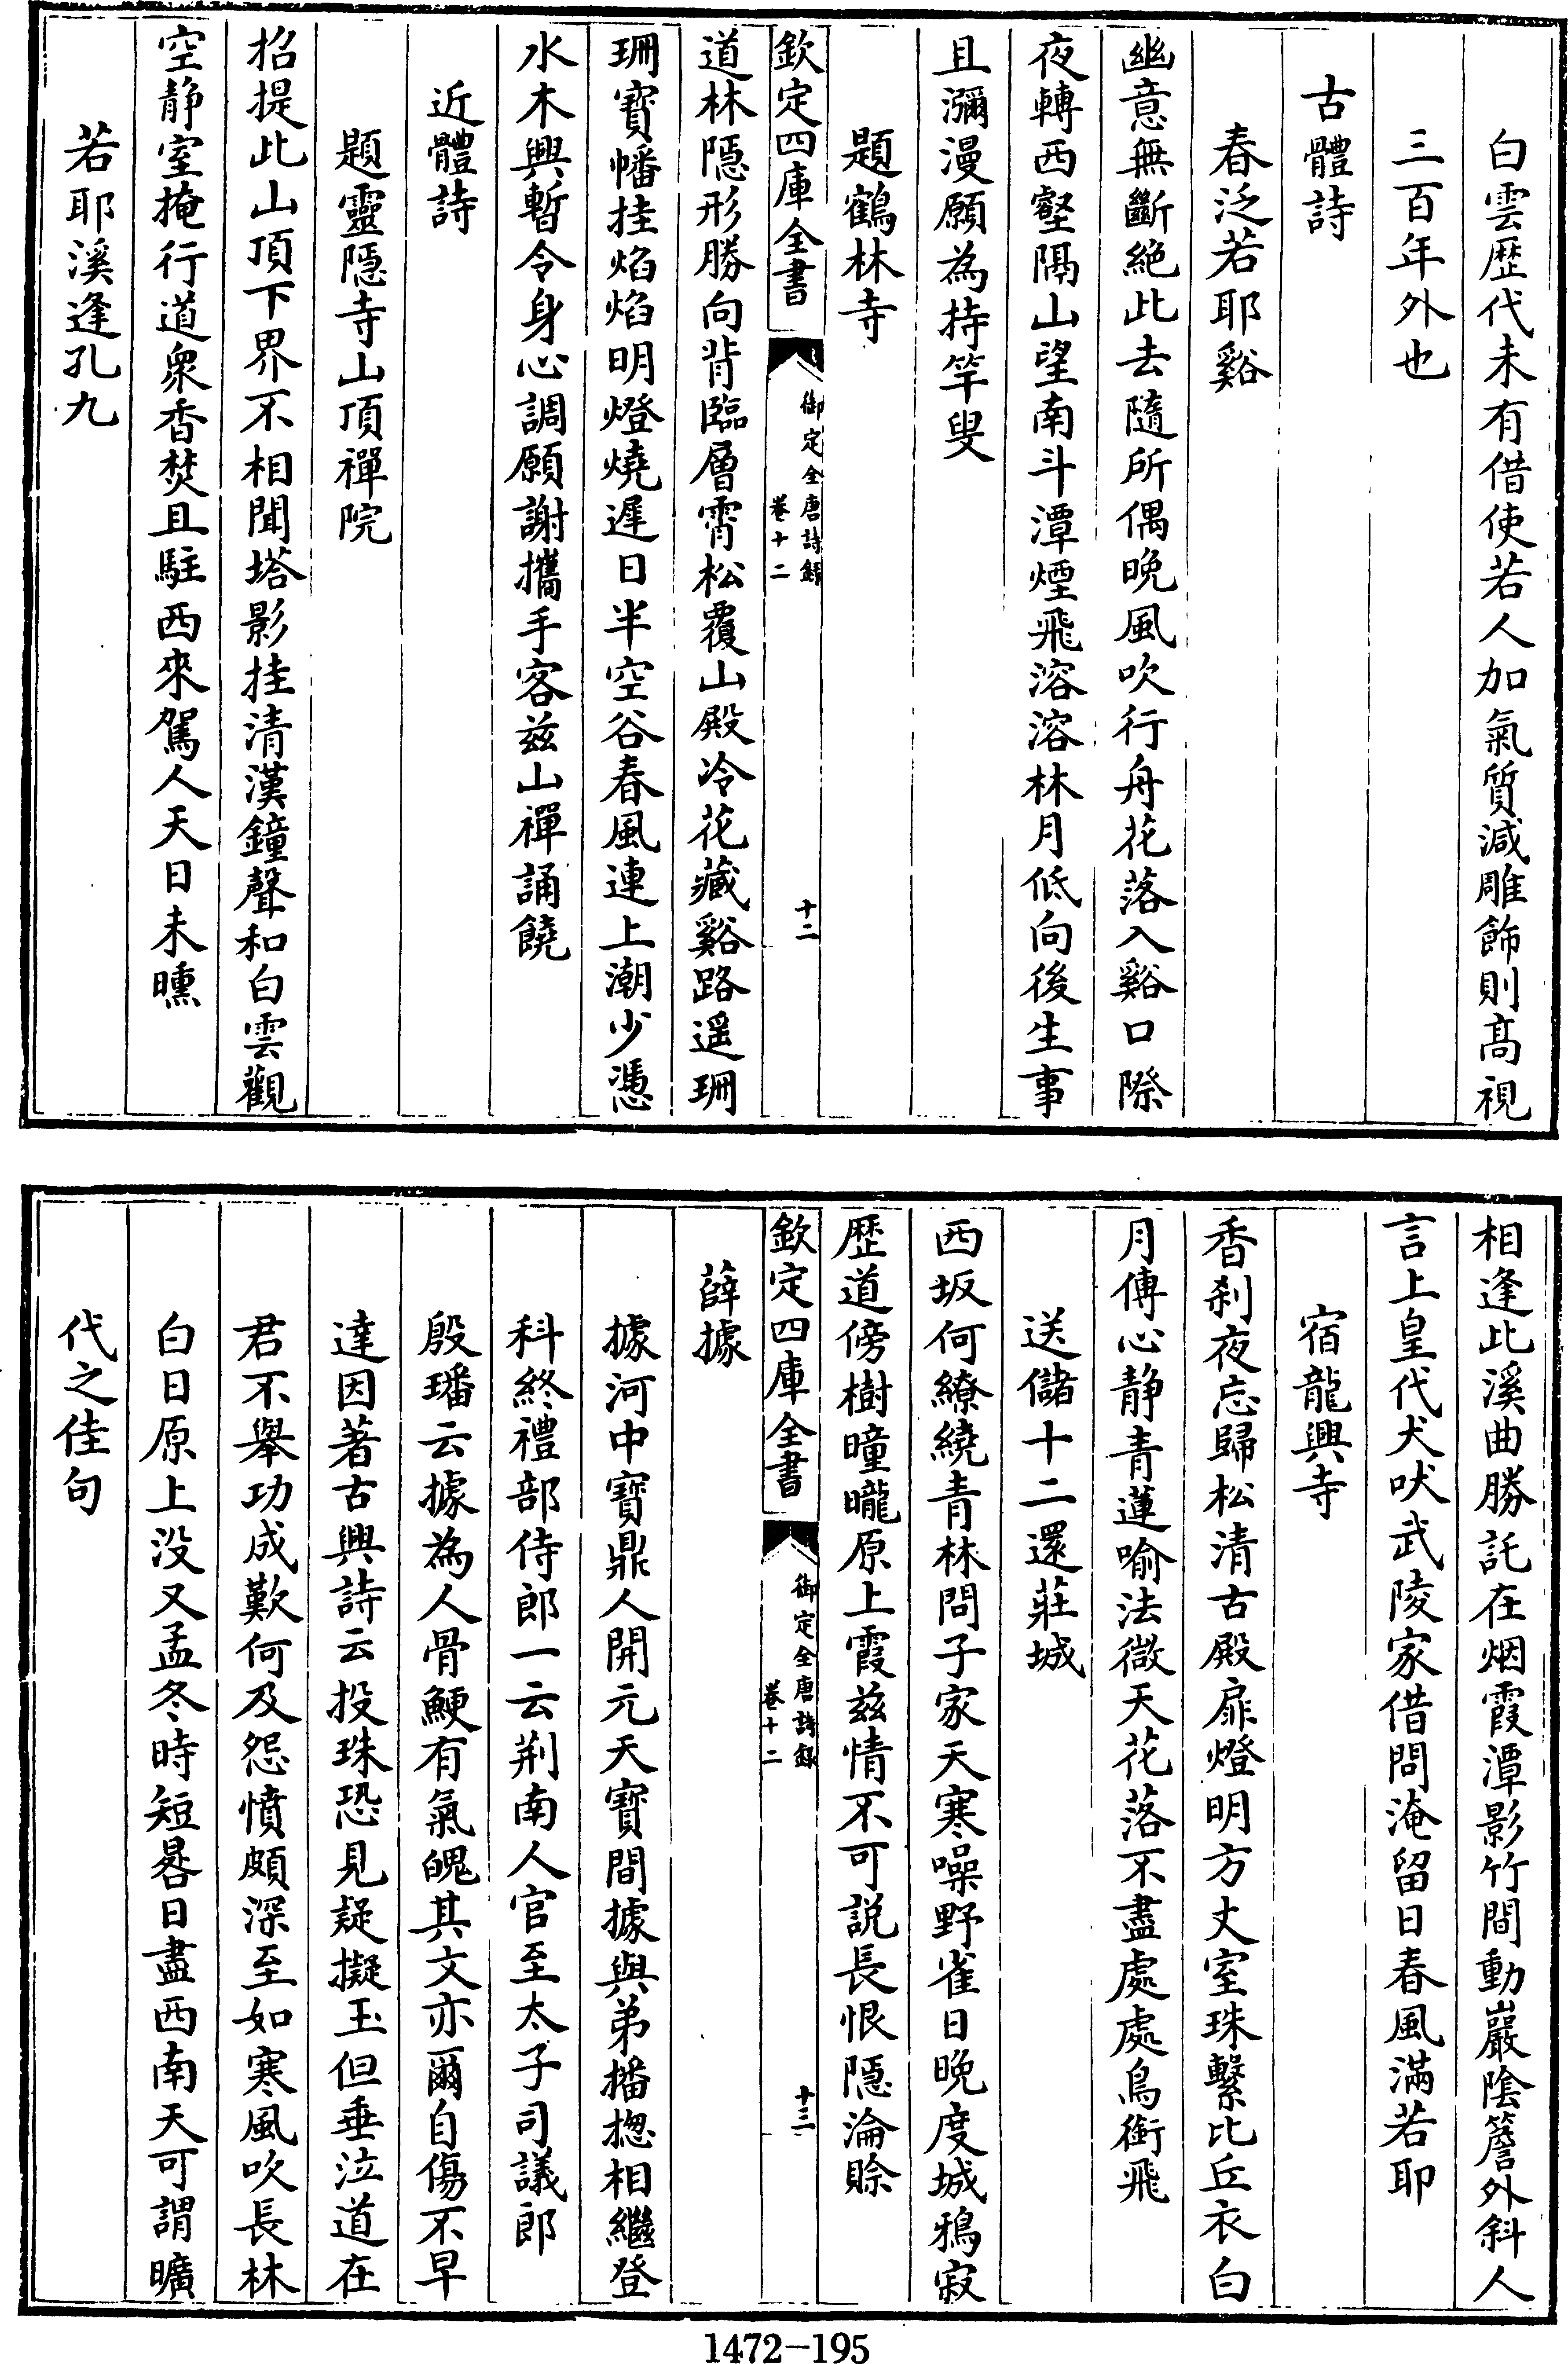 白雲歴代未有借使若人加氣質減雕飾則髙視
三百年外也
古體詩
春泛若耶谿
幽意無斷絶此去隨所偶晩風吹行舟花落入谿口際
夜轉西壑隔山望南斗潭煙飛溶溶林月低向後生事
且瀰漫願為持竿叟
題鶴林寺
欽定四庫全書
御定全唐詩録
卷十二
十二
道林隱形勝向背臨層霄松覆山殿冷花藏谿路遥珊
珊寳幡挂焰焰明燈燒遲日半空谷春風連上潮少憑
水木興暫令身心調願謝攜手客兹山禪誦饒
近體詩
題靈隱寺山頂禪院
招提此山頂下界不相聞塔影挂清漢鐘聲和白雲觀
空静室掩行道衆香焚且駐西來駕人天日未曛
若耶溪逢孔九
相逢此溪曲勝託在烟霞潭影竹間動巖陰簷外斜人
言上皇代犬吠武陵家借問淹留日春風滿若耶
宿龍興寺
香刹夜忘歸松清古殿扉燈明方丈室珠繫比丘衣白
月傳心静青蓮喻法微天花落不盡處處鳥銜飛
送儲十二還莊城
西坂何繚繞青林問子家天寒噪野雀日晩度城鴉寂
歴道傍樹曈曨原上霞兹情不可説長恨隱淪賒
欽定四庫全書
御定全唐詩録
卷十二
十三
薛據
據河中寳鼎人開元天寳間據與弟播揔相繼登
科終禮部侍郎一云荆南人官至太子司議郎
殷璠云據為人骨鯁有氣魄其文亦爾自傷不早
達因著古興詩云投珠恐見疑擬玉但垂泣道在
君不舉功成歎何及怨憤頗深至如寒風吹長林
白日原上没又孟冬時短晷日盡西南天可謂曠
代之佳句
1472-195